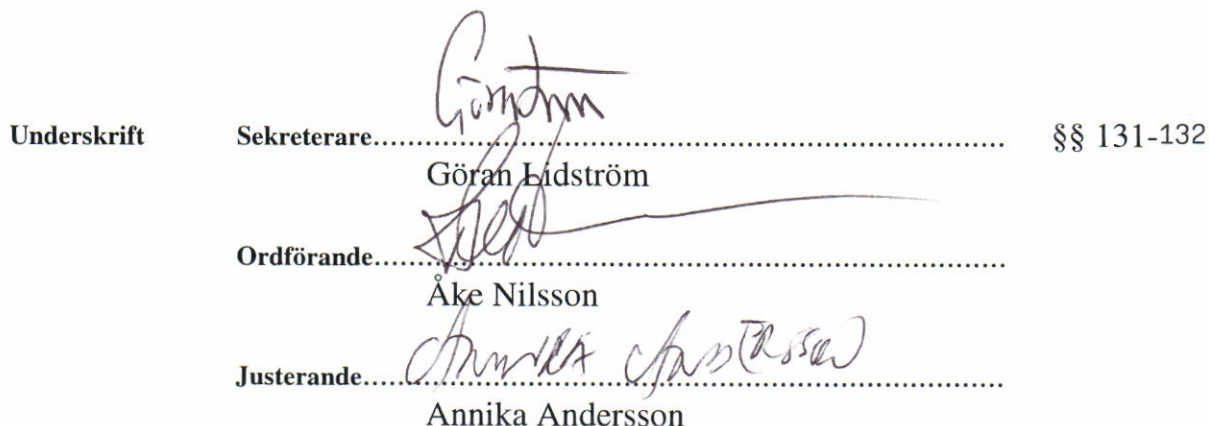 Underskrift Sekreterare........................ §§ 131-132
Göran Lidström
Ordförande........................
Åke Nilsson
Justerande........................
Annika Andersson